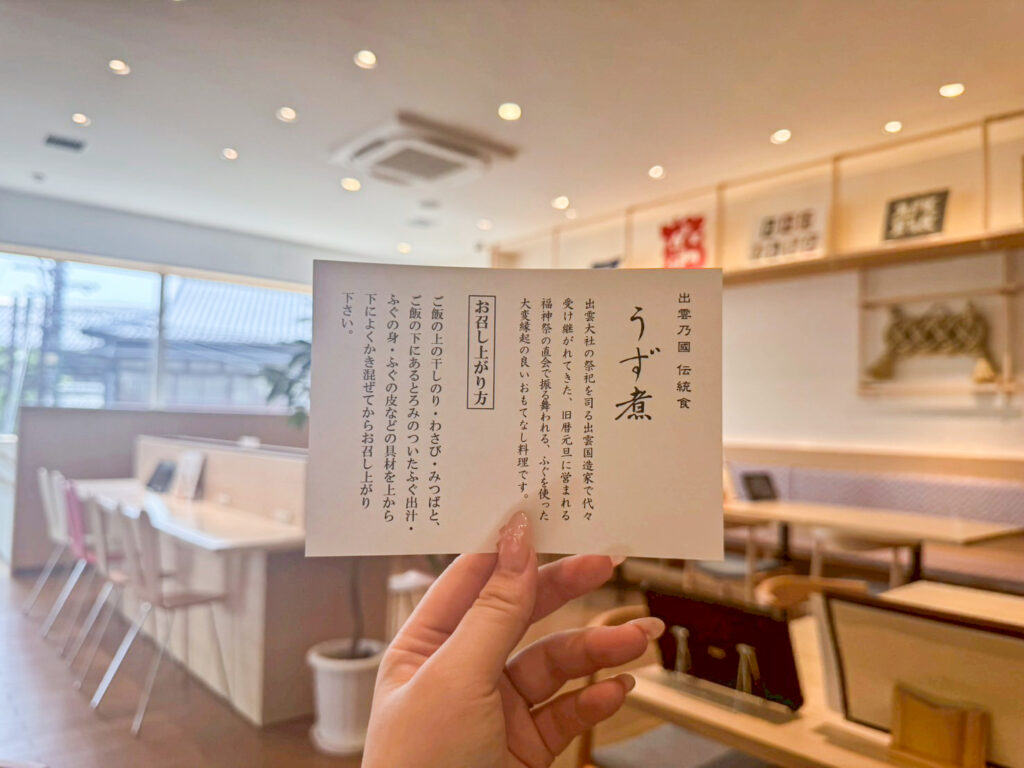 出雲乃國 伝統食
うず煮
出雲大社の祭祀を司る出雲国造家で代々
受け継がれてきた、旧暦元旦に営まれる
福神祭の直会で振る舞われる、ふぐを使った
大変縁起の良いおもてなし料理です。
お召し上がり方
ご飯の上の干しのり・わさび・みつばと、
ご飯の下にあるとろみのついたふぐ出汁・
ふぐの身・ふぐの皮などの具材を上から
下によくかき混ぜてからお召し上がり
下さい。